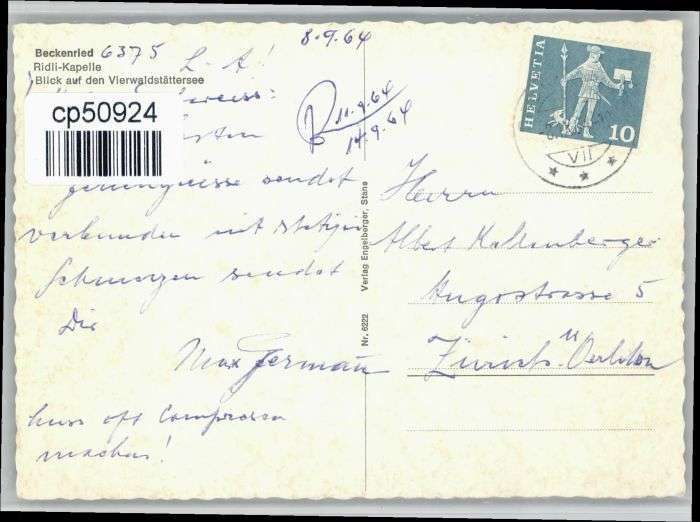 Beckenried 6375
Ridli-Kapelle
Blick auf den Vierwaldstättersee
8.9.64
L. A!
cp50924
sendet
verbunden mit
Schmerzen sendet
Dir
Max Germann
muss oft Compressen
machen!
11.9.64
14.9.64
Nr. 6222 Verlag Engelberger, Stans
HELVETIA
10
VII
Herrn
Albert Kallenberger
Hugostrasse 5
Zürich 11 Oerlikon